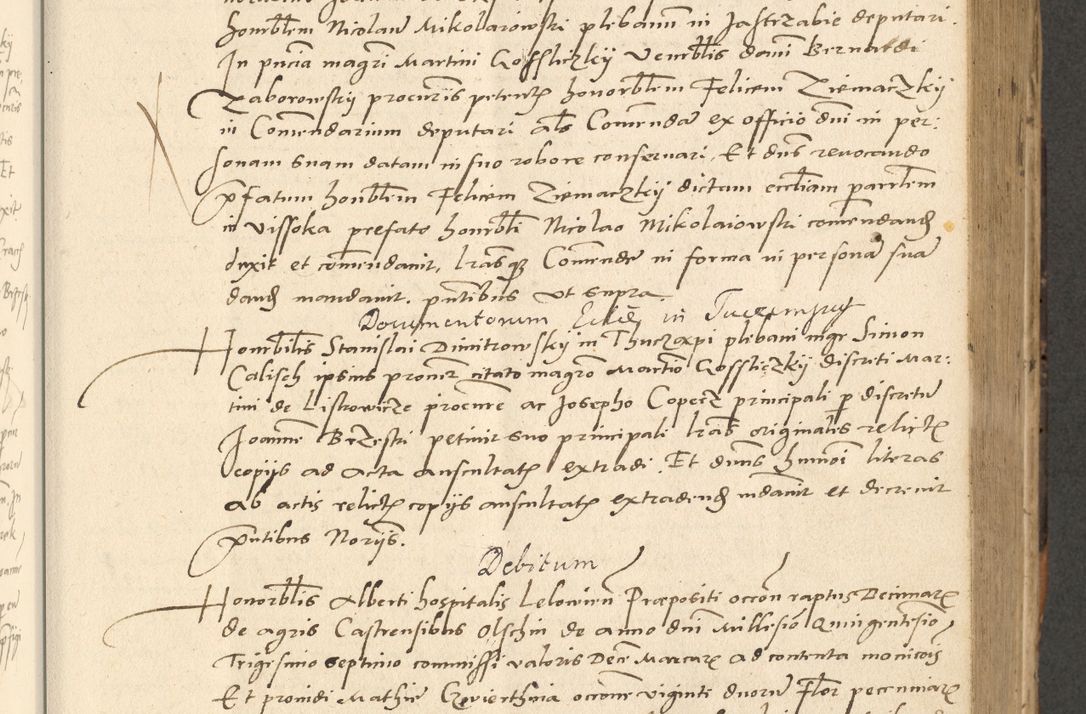 honorblem Nicolaum Mikolaiowski plebanum in Jastrzabie deputari.
In pncia magri Martini Gosslizkij Venerblis domi Bernardi
Zaborowskij procuris petente honorblem Felicem Ziemaczkij
in Comendarium deputari als Comendam ex officio dni in per:
sonam suam datam in suo robore conservari. Et dns revocando
pfatum honorblem Felicem Ziemaczkij dictam eccliam parrlem
in Vissoka prefato honorbli Nicolao Mikolaiowski comendand
duxit et comendavit, lrasque Comende in forma in persona sua
dand mandavit. pntibus ut supra.
Documentorum Ecclie in
Honorbilis Stanislai Dimitrowskij in plebani mgr Simon
Calisch ipsius procur citato magro Martino Gosslizkij discreti Mar:
tini de Listrowicze procure ac Josepho Copecz principali p discretum
Joannem Brzeski petivit suo principali lras originales relictis
copijs ad acta auscultatis extradi. Et dnus huiusmoi literas
ab actis relictis copijs auscultatis extradend mdavit et decrevit
pntibus Norijs.
Debitum
Honorblis Alberti hospitalis Lelovien Præpositi occon raptus Decimarum
de agris Castrensibus Olschin de anno dni Millesimo Quingentesimo
Trigesimo septimo commissi valoris Decem Marcarum ad contenta monicois
Et providi Mathie occone viginti duorum Flor pecuniarum